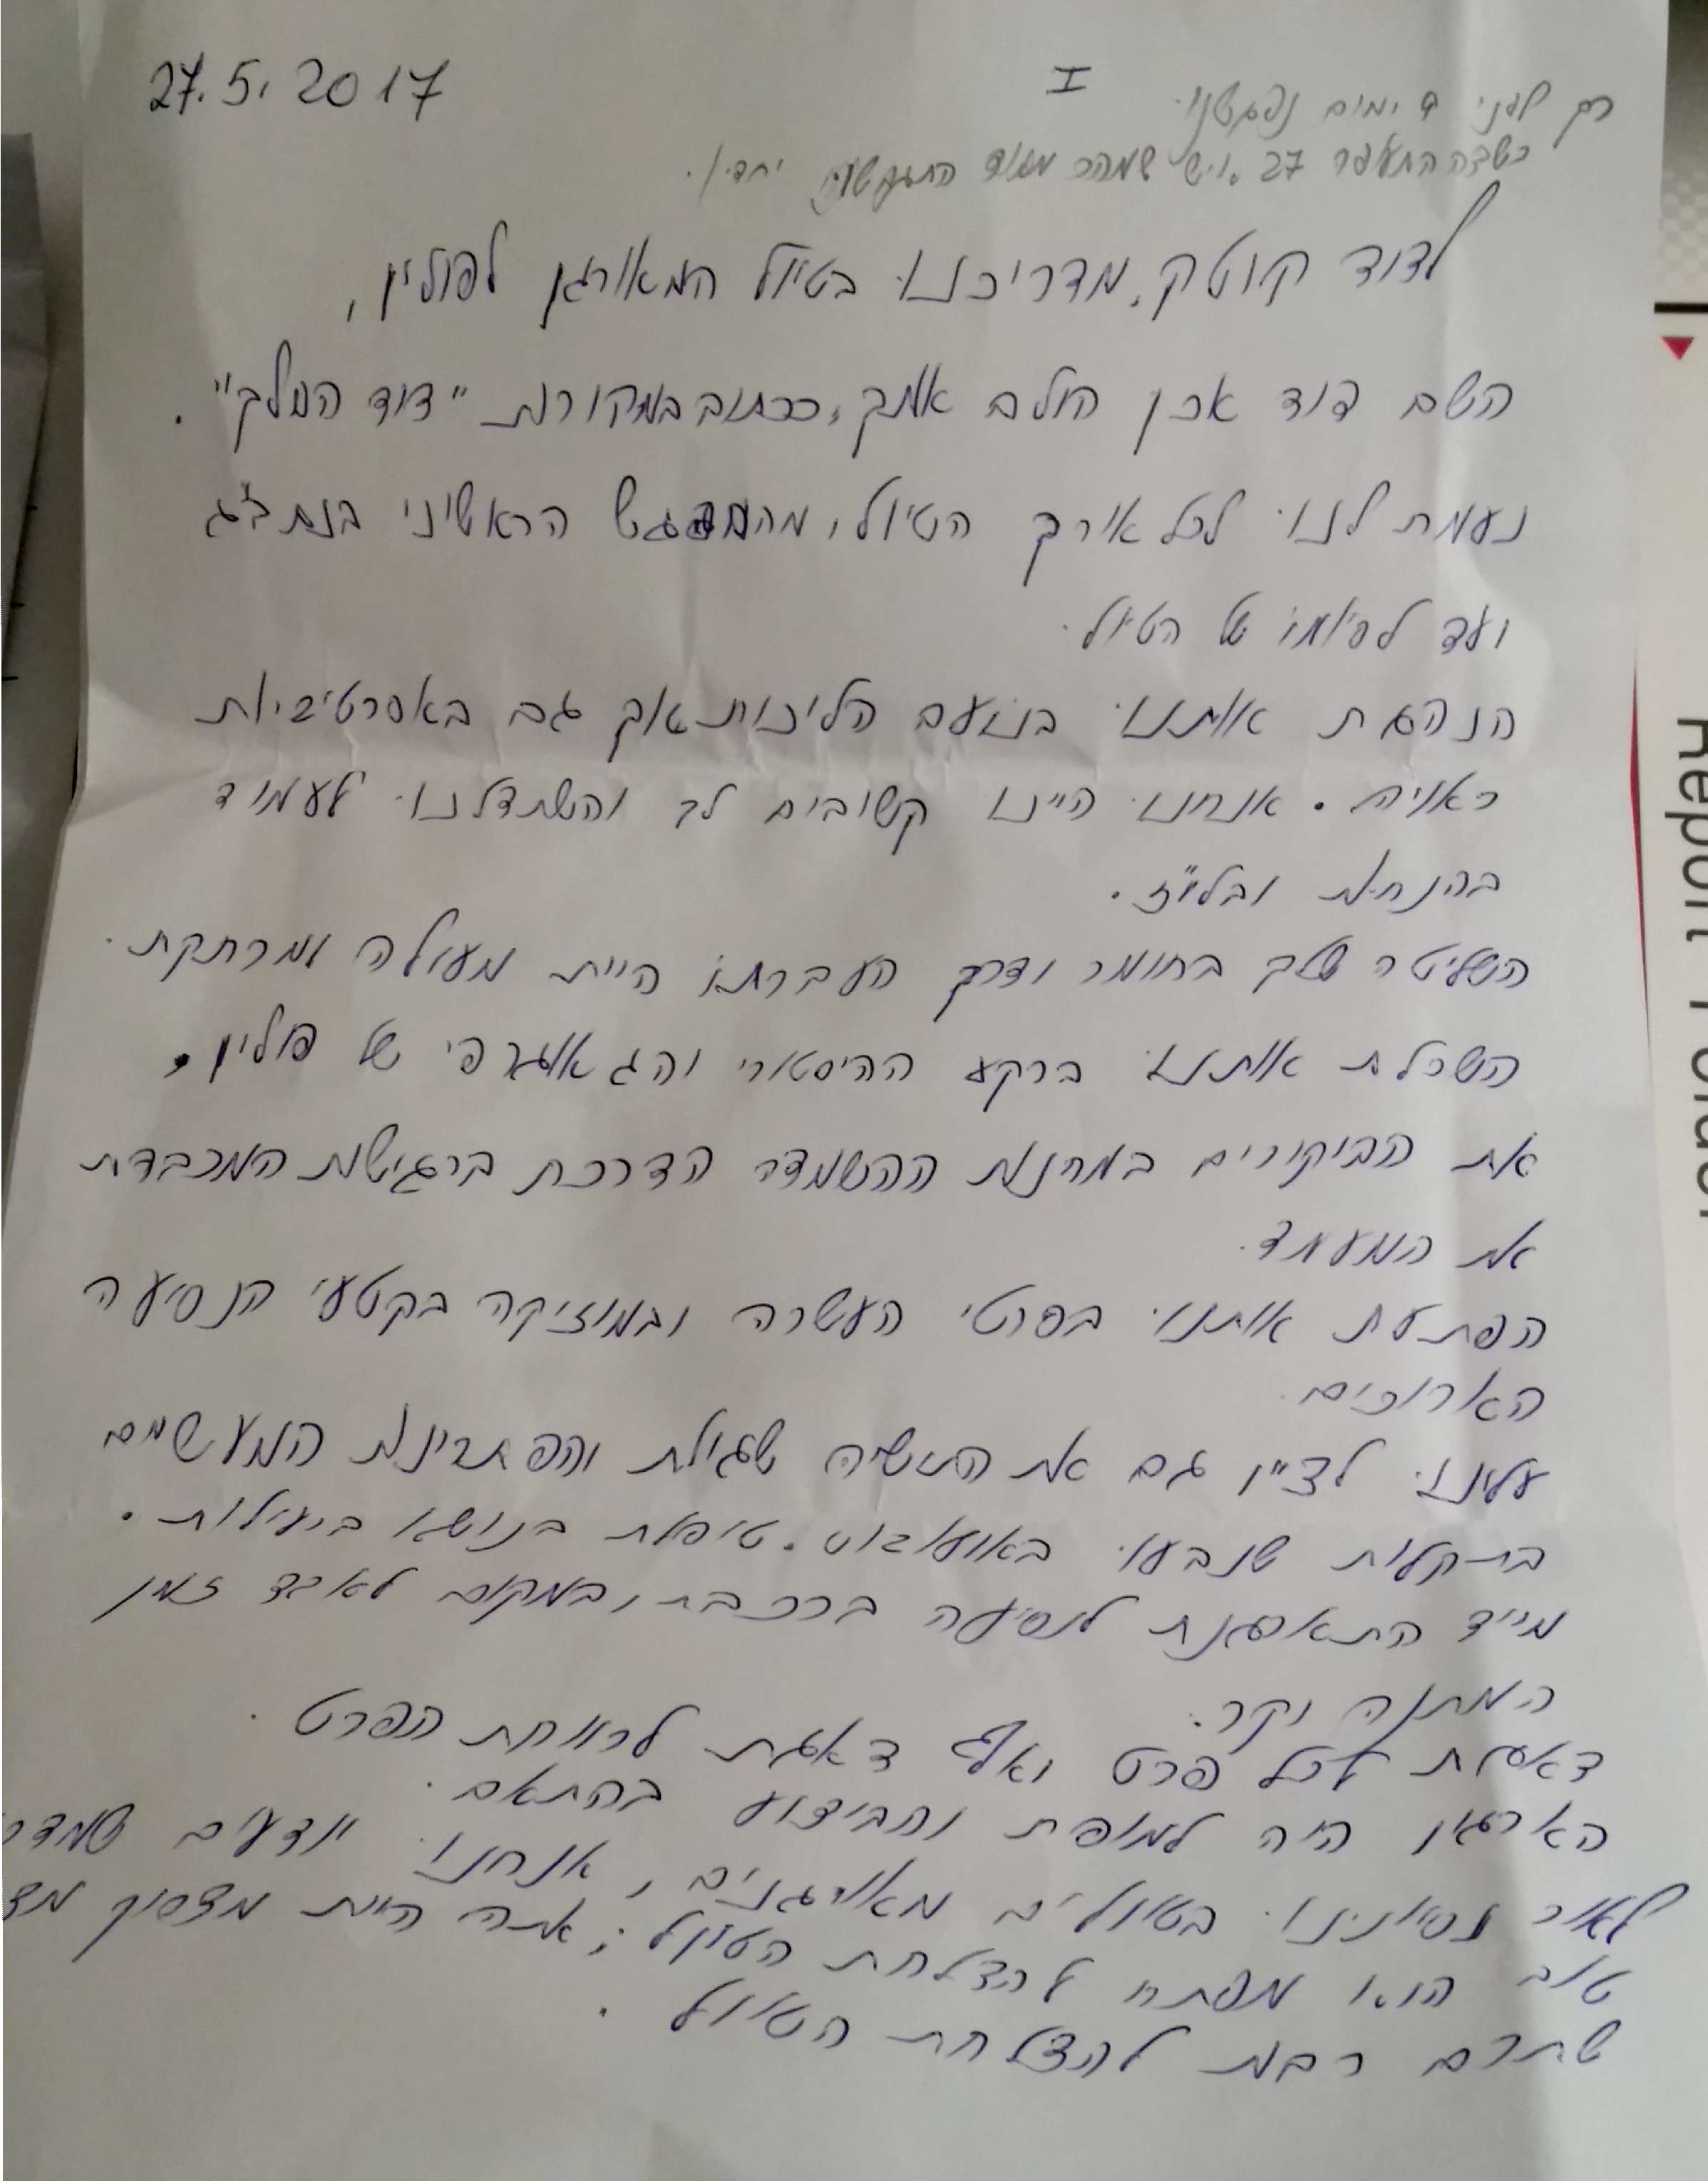 27.5.2017
I
רק לפני 8 ימים נפגשנו.
כשדה התעופה 27 איש שמהר מאוד התגבשו יחדיו.
לדוד קוטק, מדריכנו בטיול המאורגן לפולין,
השם דוד אכן הולם אותך, ככתוב במקורות "דוד המלך".
נעמת לנו לכל אורך הטיול, מהמפגש הראשוני בנתב"ג
ועד לסיומו של הטיול.
הנהגת אותנו בנועם הליכות אך גם באסרטיביות
ראויה. אנחנו היינו קשובים לך והשתדלנו לעמוד
בהנחיות ובלו"ז.
השליטה שלך בחומר ודרך העברתו היית מעולה ומרתקת.
השכלת אותנו ברקע ההיסטורי והגאוגרפי של פולין.
את הביקורים במחנות ההשמדה הדרכת ברגישות המכבדת
את המעמד.
הפתעת אותנו בפרטי העשרה ובמוזיקה בקטעי הנסיעה
הארוכים.
עלינו לציין גם את התושיה שגילת והפתרונות המעשיים
בתקלות שנבעו באוטובוס. טיפלת בנושא ביעילות.
מייד התארגנת לנסיעה ברכבת, במקום לאבד זמן
המתנה יקר.
דאגת לכל פרט ואף דאגת לרווחת הפרט.
הארגון היה למופת והביצוע בהתאם.
לאור נסיונינו בטיולים מאורגנים, אנחנו יודעים שמדר
טוב הוא מפתח להצלחת הטיול; אתה היית מצפון מצ
שתרם רבות להצלחת הטיול.
Report Folder